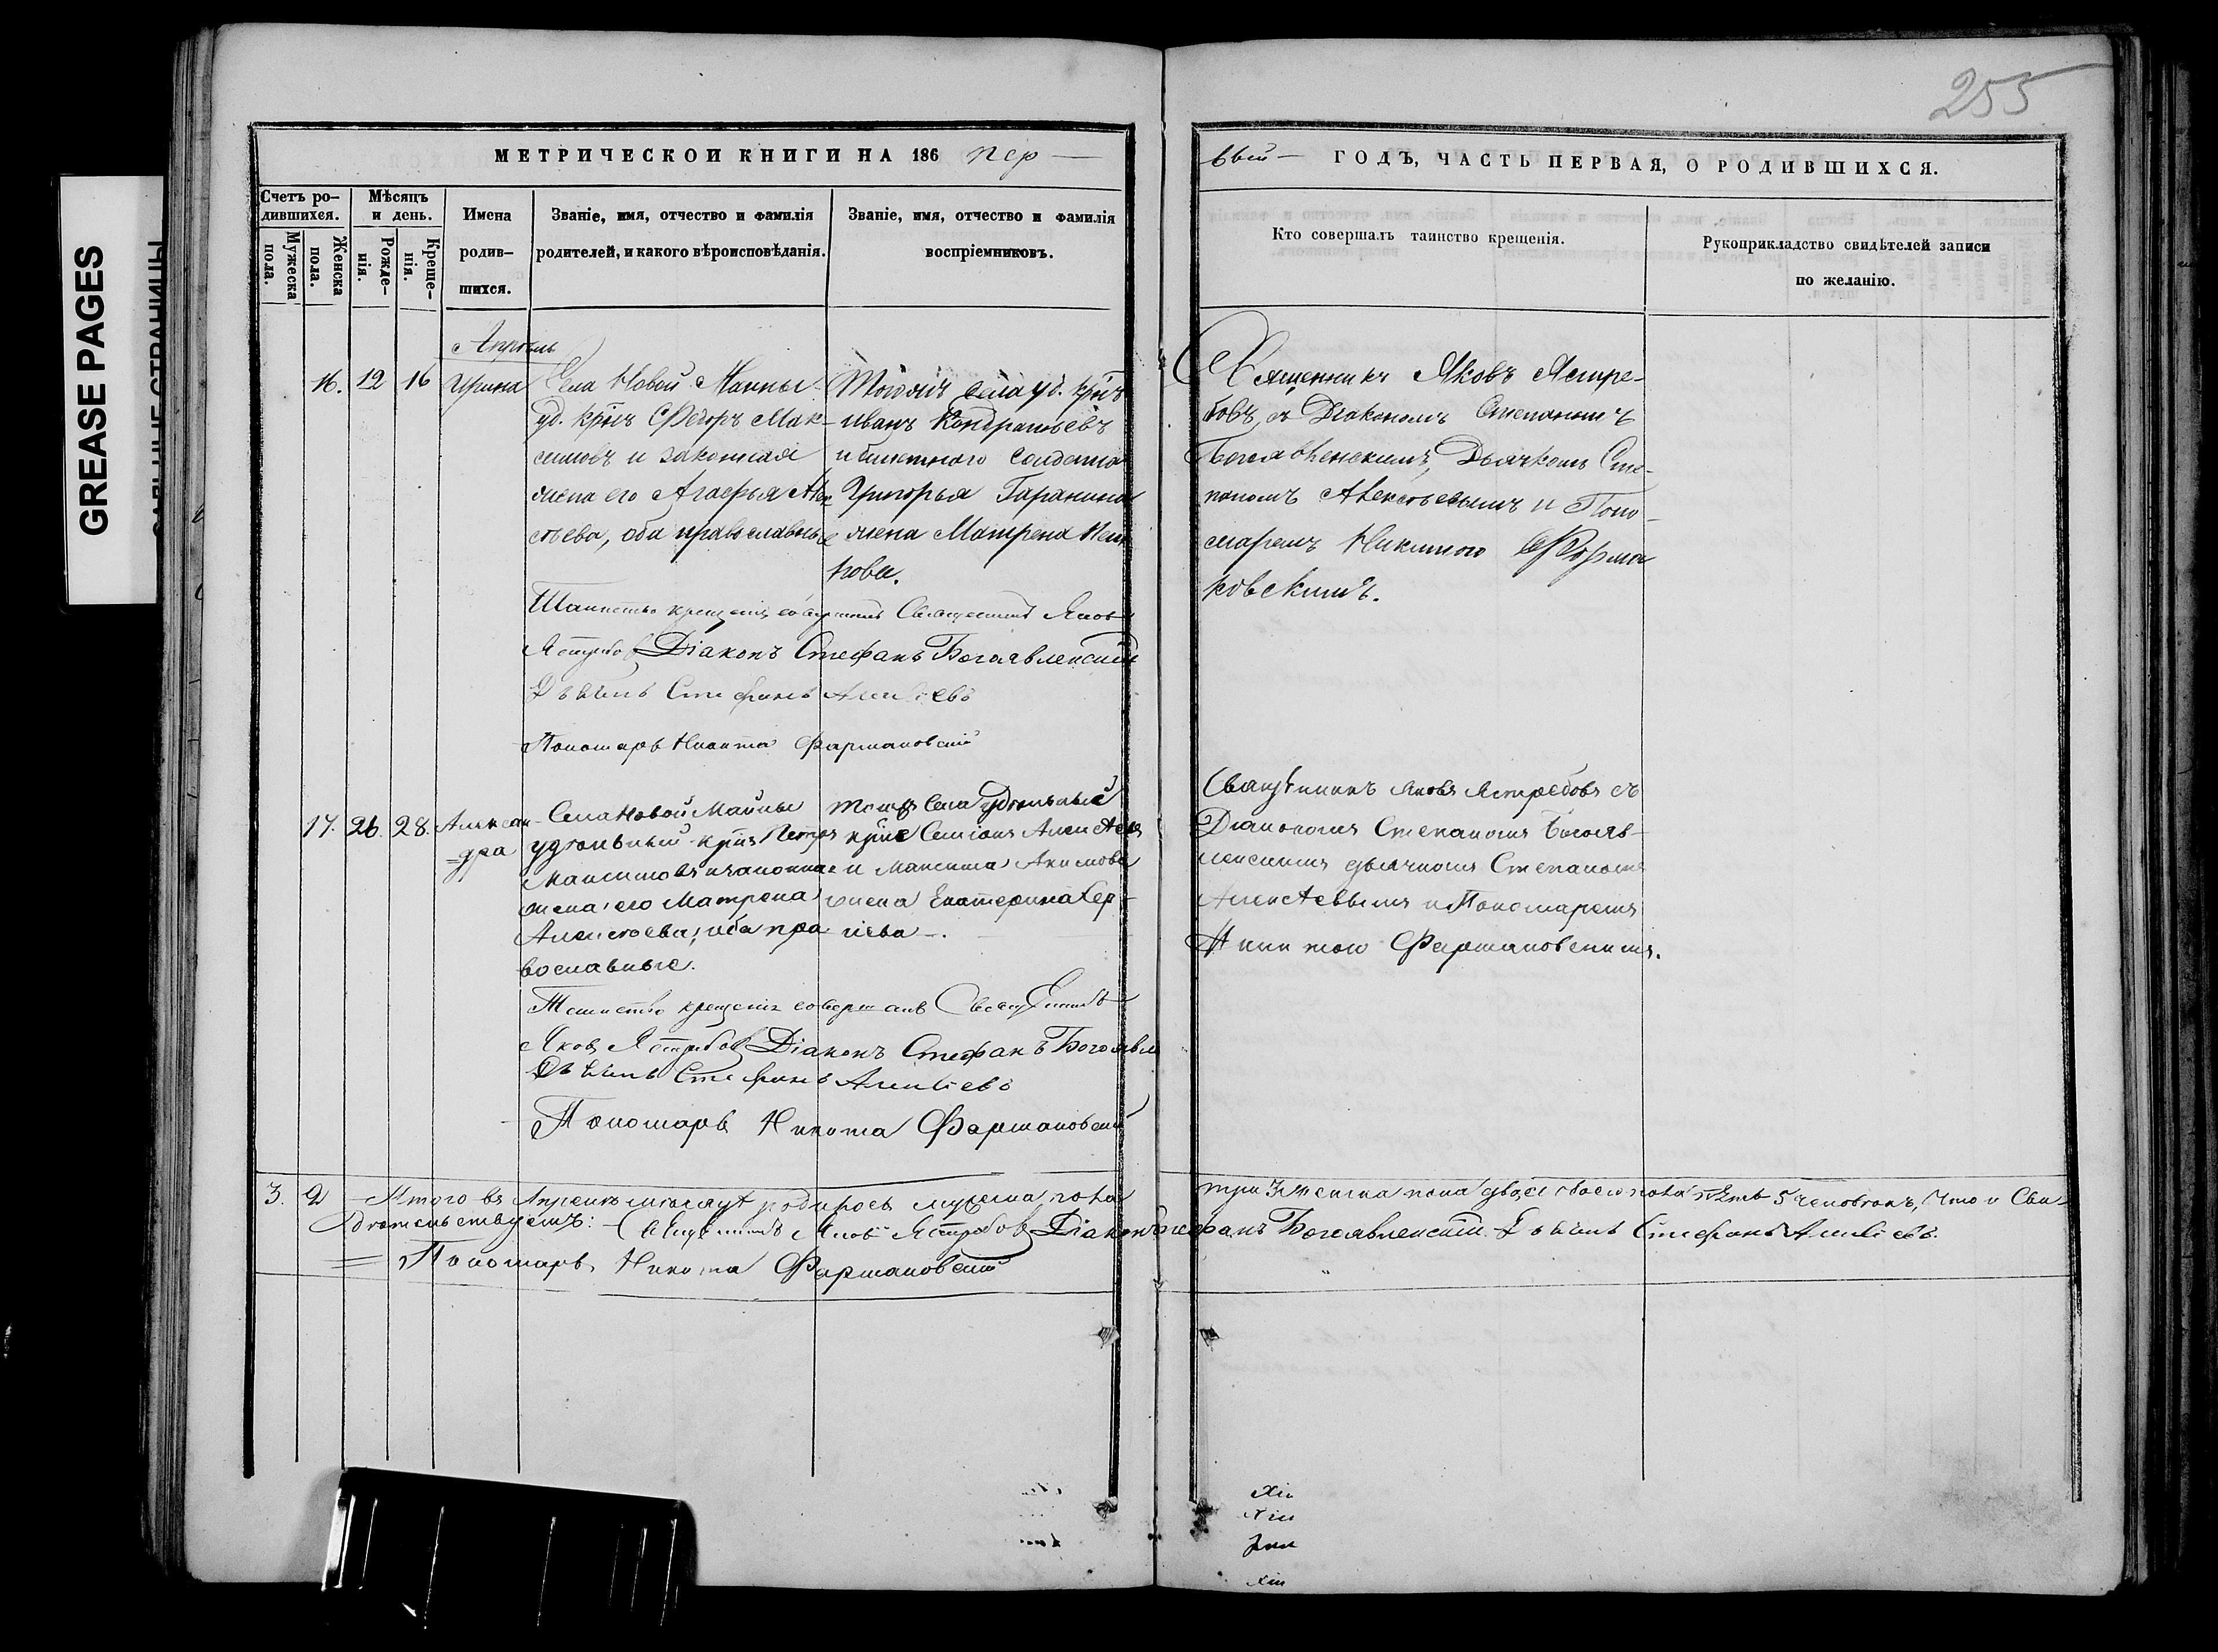 GREASE PAGES
255
МЕТРИЧЕСКОЙ КНИГИ НА 186 пер-
вый - ГОДЪ, ЧАСТЬ ПЕРВАЯ, О РОДИВШИХСЯ.
Счетъ ро-
дившихся.
Мужеска
пола.
Женска
пола.
Мѣсяцъ
и день.
Рожде-
нія.
Креще-
нія.
Имена
родив-
шихся.
Званіе, имя, отчество и фамилія
родителей, и какого вѣроисповѣданія.
Званіе, имя, отчество и фамилія
воспріемниковъ.
Кто совершалъ таинство крещенія.
Рукоприкладство свидѣтелей записи
по желанію.
Апрѣль
16. 12 16 Ирина
Села Новой Маины
уд. крнъ Ѳедоръ Мак-
симовъ и законная
жена его Агафья Алек
сѣева, оба православные
Тогожъ села уд. крнъ
Иванъ Кондратьевъ
и билетнаго солдата
Григорья Гаранина
жена Матрена
Священникъ Яковъ Ястре-
бовъ, съ Діакономъ Степаномъ
Богоявленскимъ, Дьячкомъ Сте-
паномъ Алексѣевымъ и Поно-
маремъ Никитою Фарма
ковскимъ.
Таинство крещенія совершалъ Священникъ Яковъ
Ястребовъ Діаконъ Стефанъ Богоявленскій
Дьячекъ Стефанъ Алексѣевъ
Пономарь Никита Фармаковскій
17. 26. 28. Алексан-
=дра
Села Новой Майны
удѣльный крнъ Петръ
Максимовъ и законная
жена его Матрена
Алексѣева, оба пра-
вославные.
Тогожъ Села удѣльные
крне Семіонъ Алексѣевъ
и Максима Акимова
жена Екатерина Сер-
гіева.
Священникъ Яковъ Ястребовъ съ
Діакономъ Степаномъ Богояв-
ленскимъ дьячкомъ Степаномъ
Алексѣевымъ и Пономаремъ
Никитою Фармаковскимъ.
Таинство крещенія совершалъ Священникъ
Яковъ Ястребовъ Діаконъ Стефанъ Богоявл
Дьячекъ Стефанъ Алексѣевъ
Пономарь Никита Фармаковскій
3. 2 Итого въ Апрелѣ мѣсяцѣ родилось мужеска пола три женска пола двое обоего пола пять 5 человѣкъ, Что и Сви-
дѣтельствуемъ: Священникъ Яковъ Ястребовъ Діаконъ Стефанъ Богоявленскій. Дьячекъ Стефанъ Алексѣевъ.
= Пономарь Никита Фармаковскій